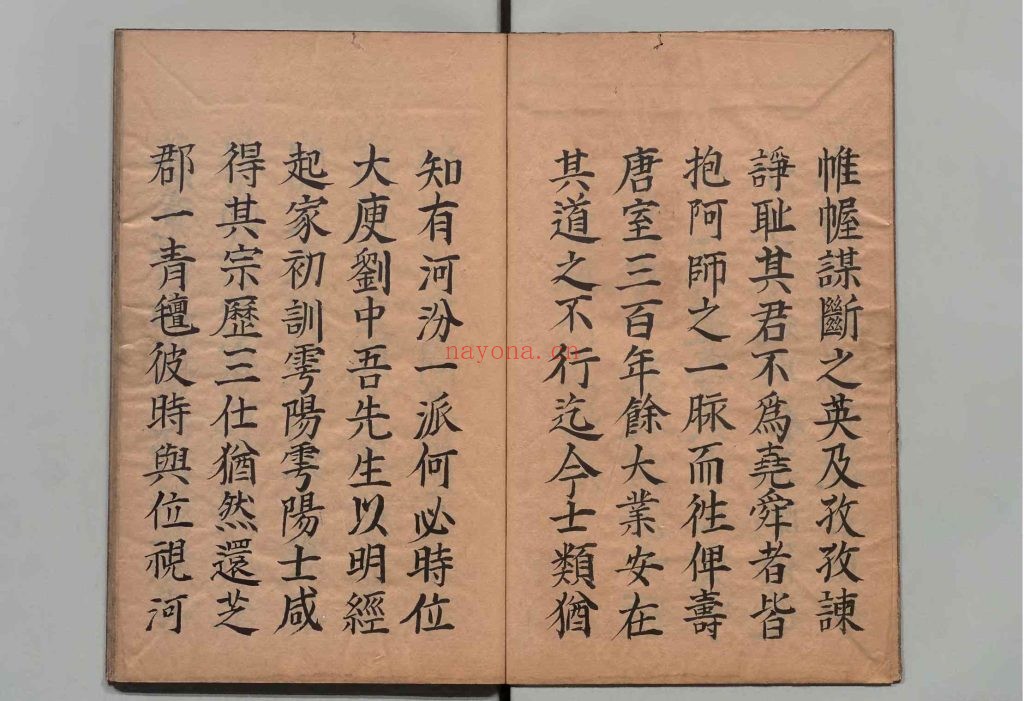 帷幄謀斷之英及孜孜諫
諍耻其君不爲堯舜者皆
抱阿師之一脉而徃俾壽
唐室三百年餘大業安在
其道之不行迄今士類猶
知有河汾一派何必時位
大庾劉中吾先生以明經
起家初訓雩陽雩陽士咸
得其宗歷三仕猶然還芝
郡一青氊彼時與位視河
nayona.cn